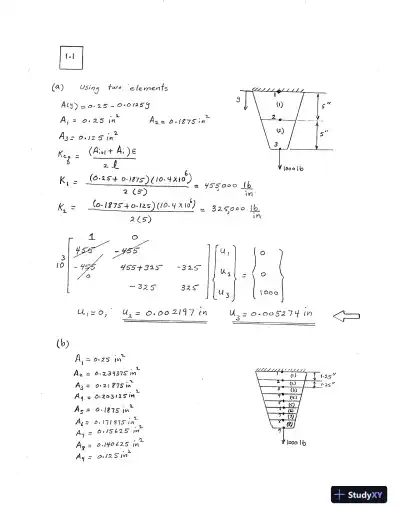 1.1
(a) Using two elements
A(y) = 0.25 - 0.0125y
A₁ = 0.25 in² A₂ = 0.1875 in²
A₃ = 0.125 in²
K_eq = (A_{i+1} + A_i)E / 2l
K₁ = (0.25+0.1875)(10.4×10⁶) / 2(5) = 455,000 lb/in
K₂ = (0.1875+0.125)(10.4×10⁶) / 2(5) = 325,000 lb/in
y 1 (1) 2 (2) 3 5" 5" 1000 lb
1 0
10³ [455 -455
-455 455+325 -325
0
-325 325] {u₁ u₂ u₃} = {0 0 1000}
u₁=0, u₂ = 0.002197 in u₃ = 0.005274 in
(b)
A₁ = 0.25 in²
A₂ = 0.234375 in²
A₃ = 0.21875 in²
A₄ = 0.203125 in²
A₅ = 0.1875 in²
A₆ = 0.171875 in²
A₇ = 0.15625 in²
A₈ = 0.140625 in²
A₉ = 0.125 in²
1.25"
1.25"
1000 lb
+ StudyXY